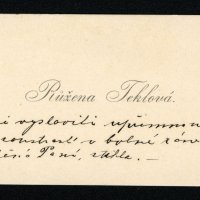 Růžena Teklová.
vysloviti upřímnou
soustrast v bolné
Paní,